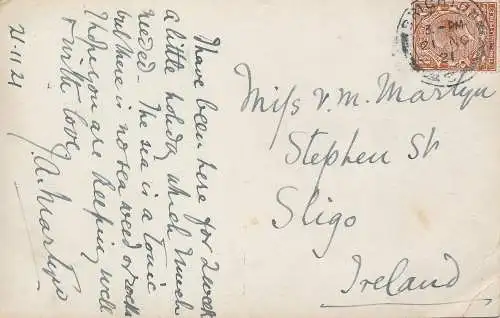 21-11-21
I have been here for 2 weeks
a little holiday which I much
needed - The sea is a tonic
but there is no sea weed or rocks
I hope you are keeping well
With love
J.A. Martyn
Miss V. M. Martyn
Stephen St
Sligo
Ireland